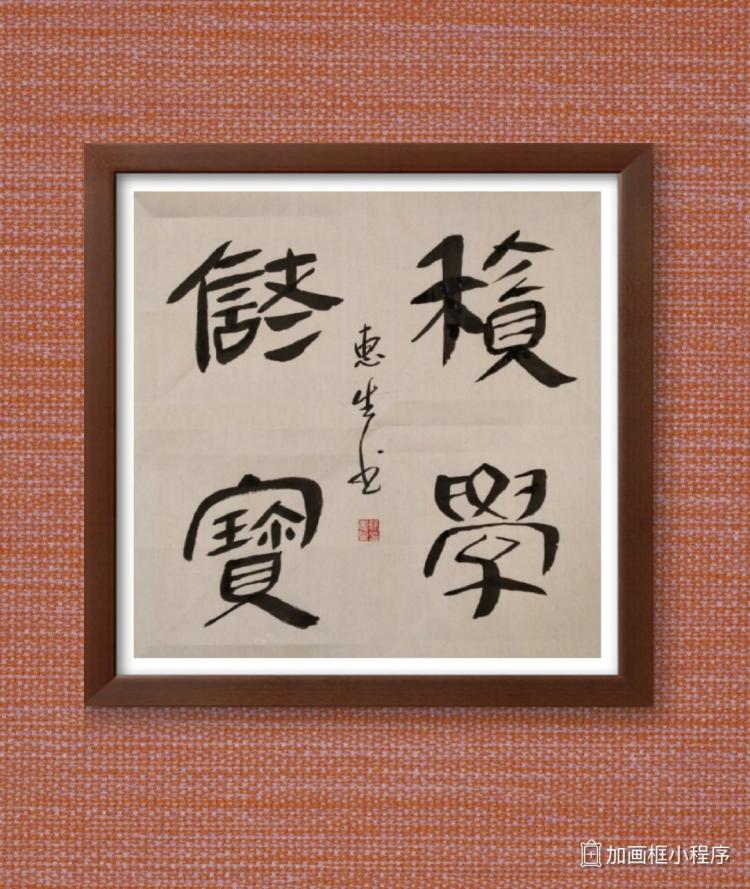 積學
儲寶
惠生书
加画框小程序